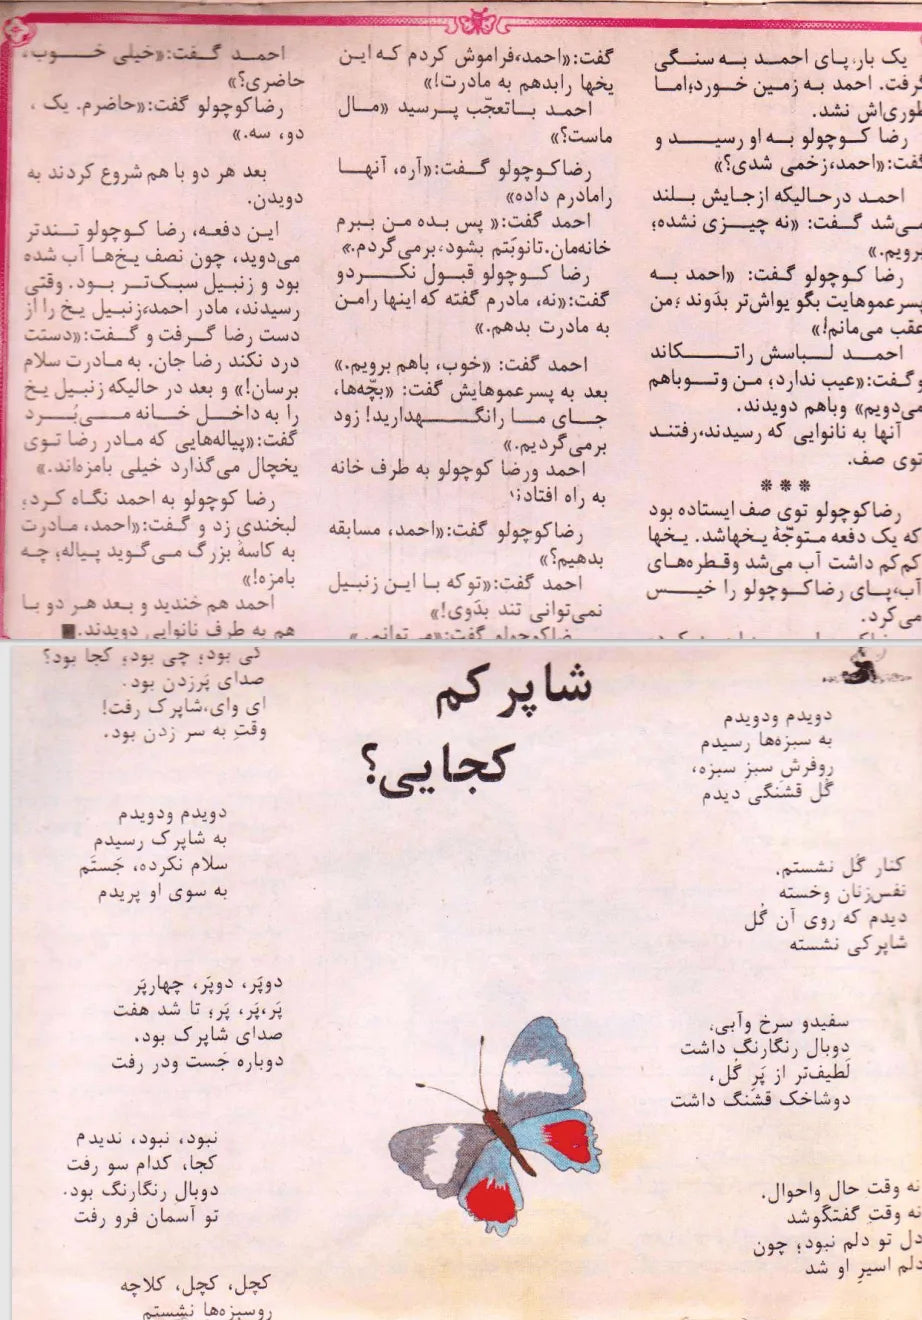 یک بار، پای احمـد بـه سـنـگی
گرفت. احمد به زمین خورد؛امـا
طوری‌اش نشد.
رضا کـوچولو بـه او رسیـد و
گفت:«احمد،زخمی شدی؟»
احمد درحـالیکه ازجـایش بـلند
می‌شد گـفت: «نه چیـزی نشده؛
برویم.»
رضا کـوچولو گـفت: «احمد بـه
پسرعموهایت بگو یواش‌تر بدَوند ؛من
عقب می‌مانم!»
احمـد لبـاسش راتـکاند
وگـفت:«عیب ندارد؛ من وتـوباهم
می‌دویم» وباهم دویدند.
آنها به نانوایی که رسیدند،رفتند
توی صف.
***
رضاکوچولو توی صف ایستاده بود
که یک دفعه متوجّهٔ یخهاشد. یخها
کم‌کم داشت آب می‌شد وقطره‌های
آب،پـای رضاکـوچولو را خیـس
می‌کرد.
گفت:«احمد،فراموش کردم که این
یخها رابدهم به مادرت!»
احمد بـاتعجّب پـرسید «مـال
ماست؟»
رضاکوچولو گـفت:«آره، آنهـا
رامادرم داده»
احمد گفت:« پس بده من ببرم
خانه‌مان.تانوبَتم بشود،برمی‌گردم.»
رضا کـوچولو قبـول نکـردو
گفت:«نه، مادرم گفته که اینها رامن
به مادرت بدهم.»
احمد گفت: «خوب، باهم برویم.»
بعد به پسرعموهایش گفت: «بچّه‌ها،
جـای مـا رانگـهدارید! زود
برمی‌گردیم.»
احمد ورضا کوچولو به طرف خانه
به راه افتادند؛
رضاکوچولو گفت:«احمد، مسابقه
بدهیم؟»
احمد گفت:«توکه با این زنبیل
نمی‌توانی تند بدَوی!»
رضاکوچولو گفت:«می‌توانم.»
احمد گـفت:«خیلی خـوب،
حاضری؟»
رضاکوچولو گفت:«حاضرم. یک ،
دو، سه.»
بعد هر دو با هم شروع کردند به
دویدن.
این دفعه، رضا کوچولو تـندتر
می‌دوید، چون نصف یخ‌هـا آب شده
بود و زنبیل سبکـتر بـود. وقتی
رسیدند، مادر احمد،زنبیل یخ را از
دست رضا گـرفت و گـفت:«دستت
درد نکند رضا جان. به مـادرت سلام
برسان!» و بعد در حالیکه زنبیل یخ
را به داخـل خـانه مـی‌بُـرد
گفت:«پیاله‌هایی که مادر رضا تـوی
یخچال می‌گذارد خیلی بامزه‌اند.»
رضا کوچولو به احمد نگاه کـرد،
لبخندی زد و گـفت:«احمد، مـادرت
به کاسهٔ بزرگ مـی‌گـوید پیـاله؛ چـه
بامزه!»
احمد هم خندید و بعد هر دو بـا
هم به طرف نانوایی دویدند.■
شاپرکم
کجایی؟
دویدم ودویدم
به سبزه‌ها رسیدم
روفرشِ سبزِ سبزه،
گُل قشنگی دیدم
کنار گُل نشستم.
نفس‌زنان وخسته
دیدم که روی آن گُل
شاپرکی نشسته
سفیدو سرخ وآبی.
دوبال رنگارنگ داشت
لَطیف‌تر از پَرِ گُل،
دوشاخک قشنگ داشت
نه وقت حال واحوال.
نه وقتِ گفتگوشد
دل تو دلم نبود؛ چون
دلم اسیرِ او شد
کی بود؛ چی بود؛ کجا بود؟
صدای پَرزدن بود.
ای وای،شاپرک رفت!
وقتِ به سر زدن بود.
دویدم ودویدم
به شاپرک رسیدم
سلام نکرده، جَستَم
به سوی او پریدم
دوپَر، دوپَر، چهارپَر
پَر،پَر، پَر؛ تا شد هفت
صدای شاپرک بود،
دوباره جَست ودر رفت
نبود، نبود، ندیدم
کجا، کدام سو رفت
دوبال رنگارنگ بود.
تو آسمان فرو رفت
کچل، کچل، کلاچه
روسبزه‌ها نشستم